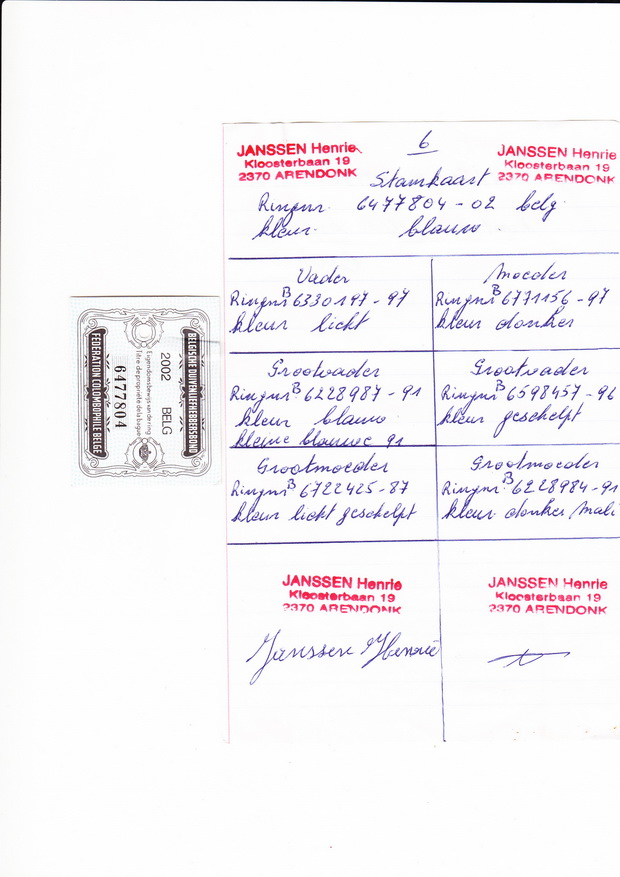 BELGISCHE DUIVENLIEFHEBBERSBOND
2002 BELG
Eigendomsbewijs van de ring
Titre de propriété de la bague
6477804
FEDERATION COLOMBOPHILE BELGE
JANSSEN Henrie
Kloosterbaan 19
2370 ARENDONK
6
JANSSEN Henrie
Kloosterbaan 19
2370 ARENDONK
Stamkaart
Ringnr. 6477804-02 belg.
kleur. blauw.
Vader
Ringnr B 6330197-97
kleur licht
Moeder
Ringnr B 6771156-97
kleur donker
Grootvader
Ringnr B 6228987-91
kleur blauw
kleine blauwe 91
Grootvader
Ringnr B 6598457-96
kleur geschelpt
Grootmoeder
Ringnr B 6722425-87
kleur licht geschelpt
Grootmoeder
Ringnr. B 6228984-91
kleur donker Mali
JANSSEN Henrie
Kloosterbaan 19
2370 ARENDONK
JANSSEN Henrie
Kloosterbaan 19
2370 ARENDONK
Janssen Henrie